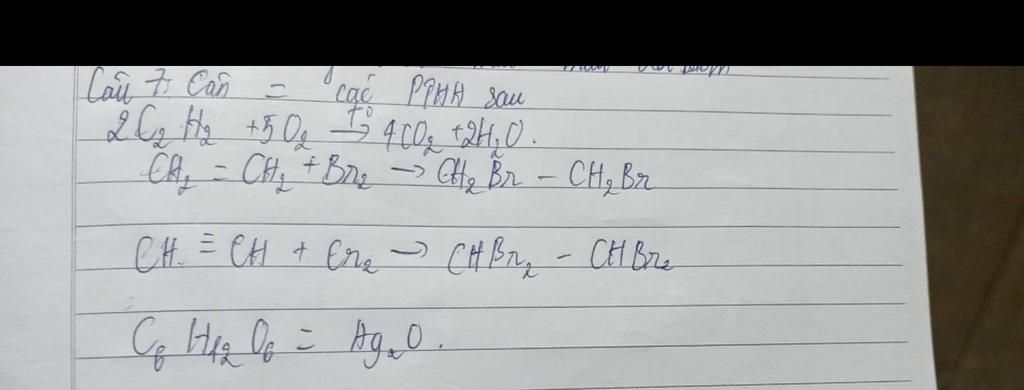 Câu 7: Cân = các PTHH sau
2C₂H₂ + 5O₂ →t° 4CO₂ + 2H₂O.
CH₂ = CH₂ + Br₂ → CH₂Br - CH₂Br
CH ≡ CH + Br₂ → CHBr₂ - CHBr₂
C₆H₁₂O₆ = Ag₂O.